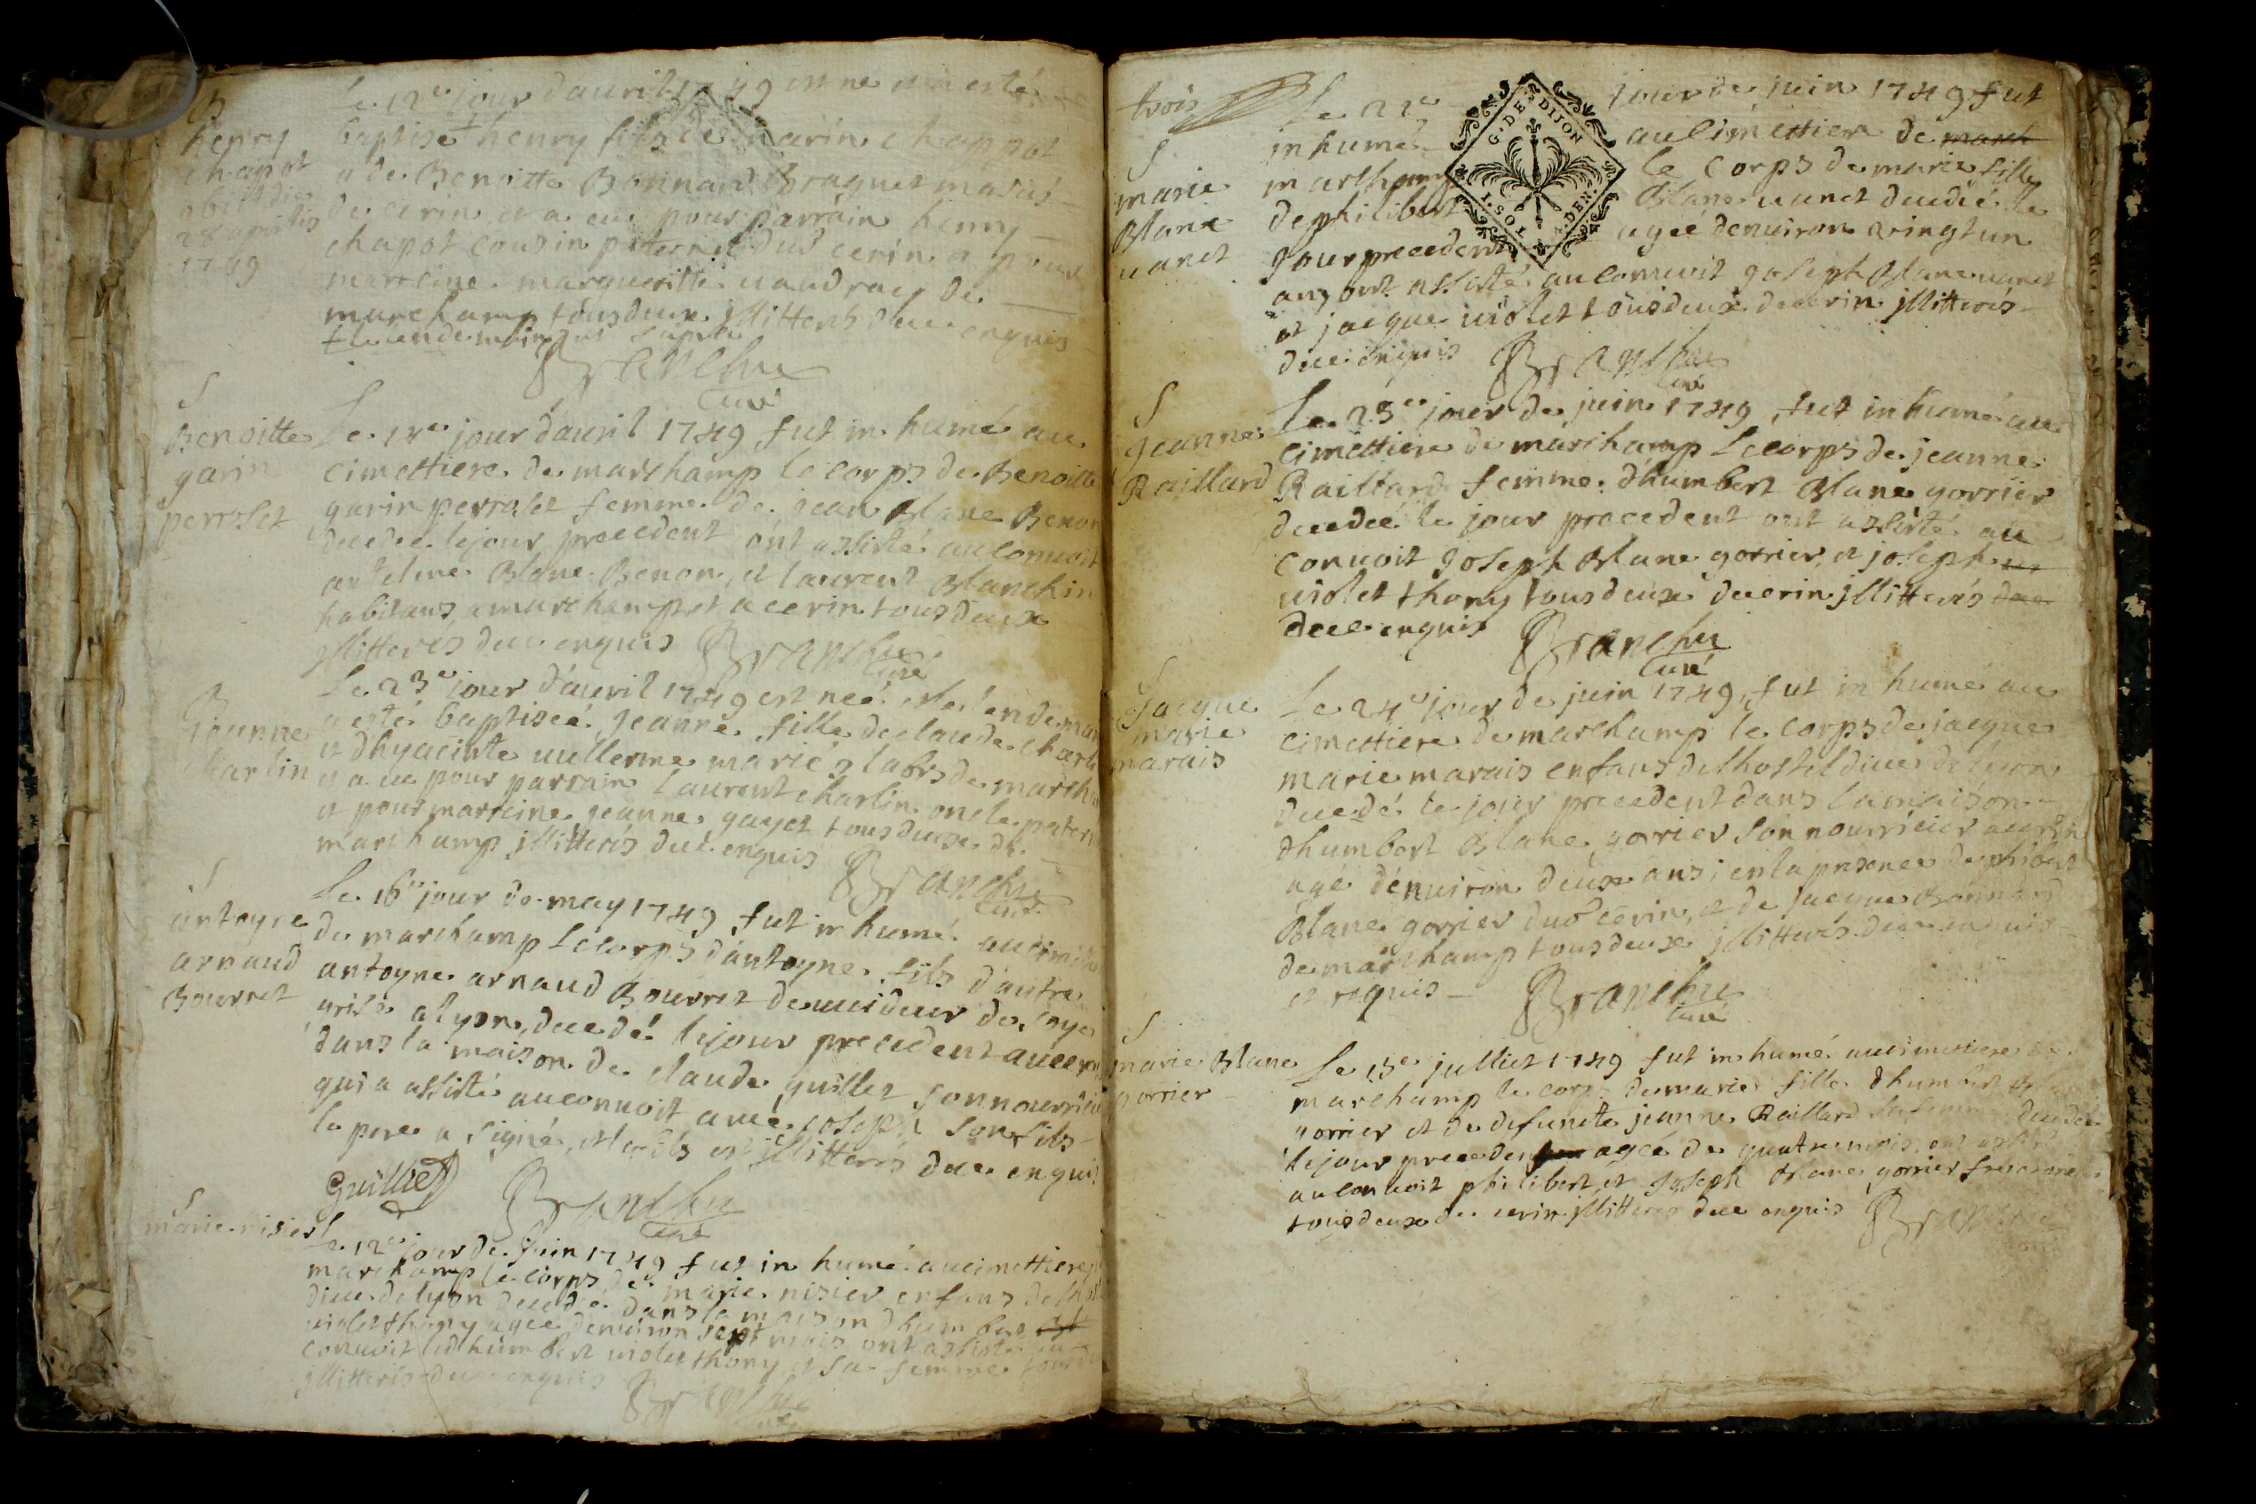 B
henry
chapot
obiit die
28 aprilis
1749
Le 12e jour dauril 1749 est ne et a esté
baptisé + henry fils de marin chappot
et de Benoitte Bonnard Braquet mariés
de cerin et a eu pour parrain henry
chapot cousin paternel dud cerin et pour
marreine margueritte uaudray de
marchamp tous deux jllitterés deue enquis
+ le endemain
Branchu
Curé
S
Benoitte
garin
perrolet
Le 18e jour dauril 1749 fut in humé au
cimettiere de marchamp le corps de Benoitte
garin perrolet femme de jean Blane Benon
decedee le jour precedent ont assisté au conuoit
antelme Blane Benon, et laurent Blanchin
habitans a marchamp et a cerin tous deux
jllitterés deue enquis Branchu
Curé
B
jeanne
charlin
Le 23e jour dauril 1749 est neé et le lendemain
a esté baptiseé jeanne fille de claude charlin
et dhyacinte uullerme mariés
y a eu pour parrain laurent charlin oncle paternel
et pour marreine jeanne gayet tous deux de
marchamp jllitterés deue enquis Branchu
Curé
S
antoyne
arnaud
Bourret
Le 16e jour de may 1749 fut in humé au
de marchamp le corps dantoyne fils dautre
antoyne arnaud Bourret deuuideur de soye
a lyon, decedé le jour precedent a cerin
dans la maison de claude guillet son nourricier
qui a assisté au conuoit aueé joseph son fils
le pere a signé, et le fils est jllitterés deue enquis
Guilliet Branchu
Curé
S
marie nisier
Le 12e jour de juin 1749 fut in humé au cimettiere
marchamp le corps de marie nisier enfans de
dieu de lyon decedé dans la maison dhumbert
uiolet thony agee denuiron sept mois ont assisté au
conuoit led humbert uiolet thony et sa femme tous
jllitterés deue enquis Branchu
Curé
trois
S
marie
Blane
uanet
Le 22e jour de juin 1749 fut
inhumé au cimettiere de
marchamp le corps de marie fille
de philibert Blane uanet decedeé le
jour precedent ageé denuiron uingt un
ans ont assisté au conuoit joseph Blane uanet
et jacque uiolet tous deux de cerin jllitterés
deue enquis Branchu
Curé
G. DE DIJON
S
jeanne
Raillard
Le 23e jour de juin 1749 fut in humé au
cimettiere de marchamp le corps de jeanne
Raillard femme dhumbert Blane gorrier
decedeé le jour precedent ont assisté au
conuoit joseph Blane gorrier, et joseph
uiolet thony tous deux de cerin jllitterés
deue enquis Branchu
Curé
S
Jacque
marie
marais
Le 24e jour de juin 1749, fut in humé au
cimettiere de marchamp le corps de jacque
marie marais enfans de lhostel dieu de lyon
decedé le jour precedent dans la maison
dhumbert Blane gorrier son nourricier a cerin
age denuiron deux ans; en la presence de philibert
Blane gorrier dud cerin, et de jacque Bonnard
de marchamp tous deux jllitterés deue enquis
et requis Branchu
Curé
S
marie Blane
gorrier
Le 15e julliet 1749 fut in humé au cimettiere de
marchamp le corps de marie fille dhumbert Blane
gorrier et de defuncte jeanne Raillard sa femme decedeé
le jour precedent ageé de quatre mois, ont assisté
au conuoit philibert, et joseph Blane gorrier
tous deux de cerin jllitterés deue enquis Branchu
Curé